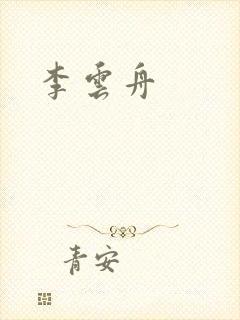 李雲舟
青安